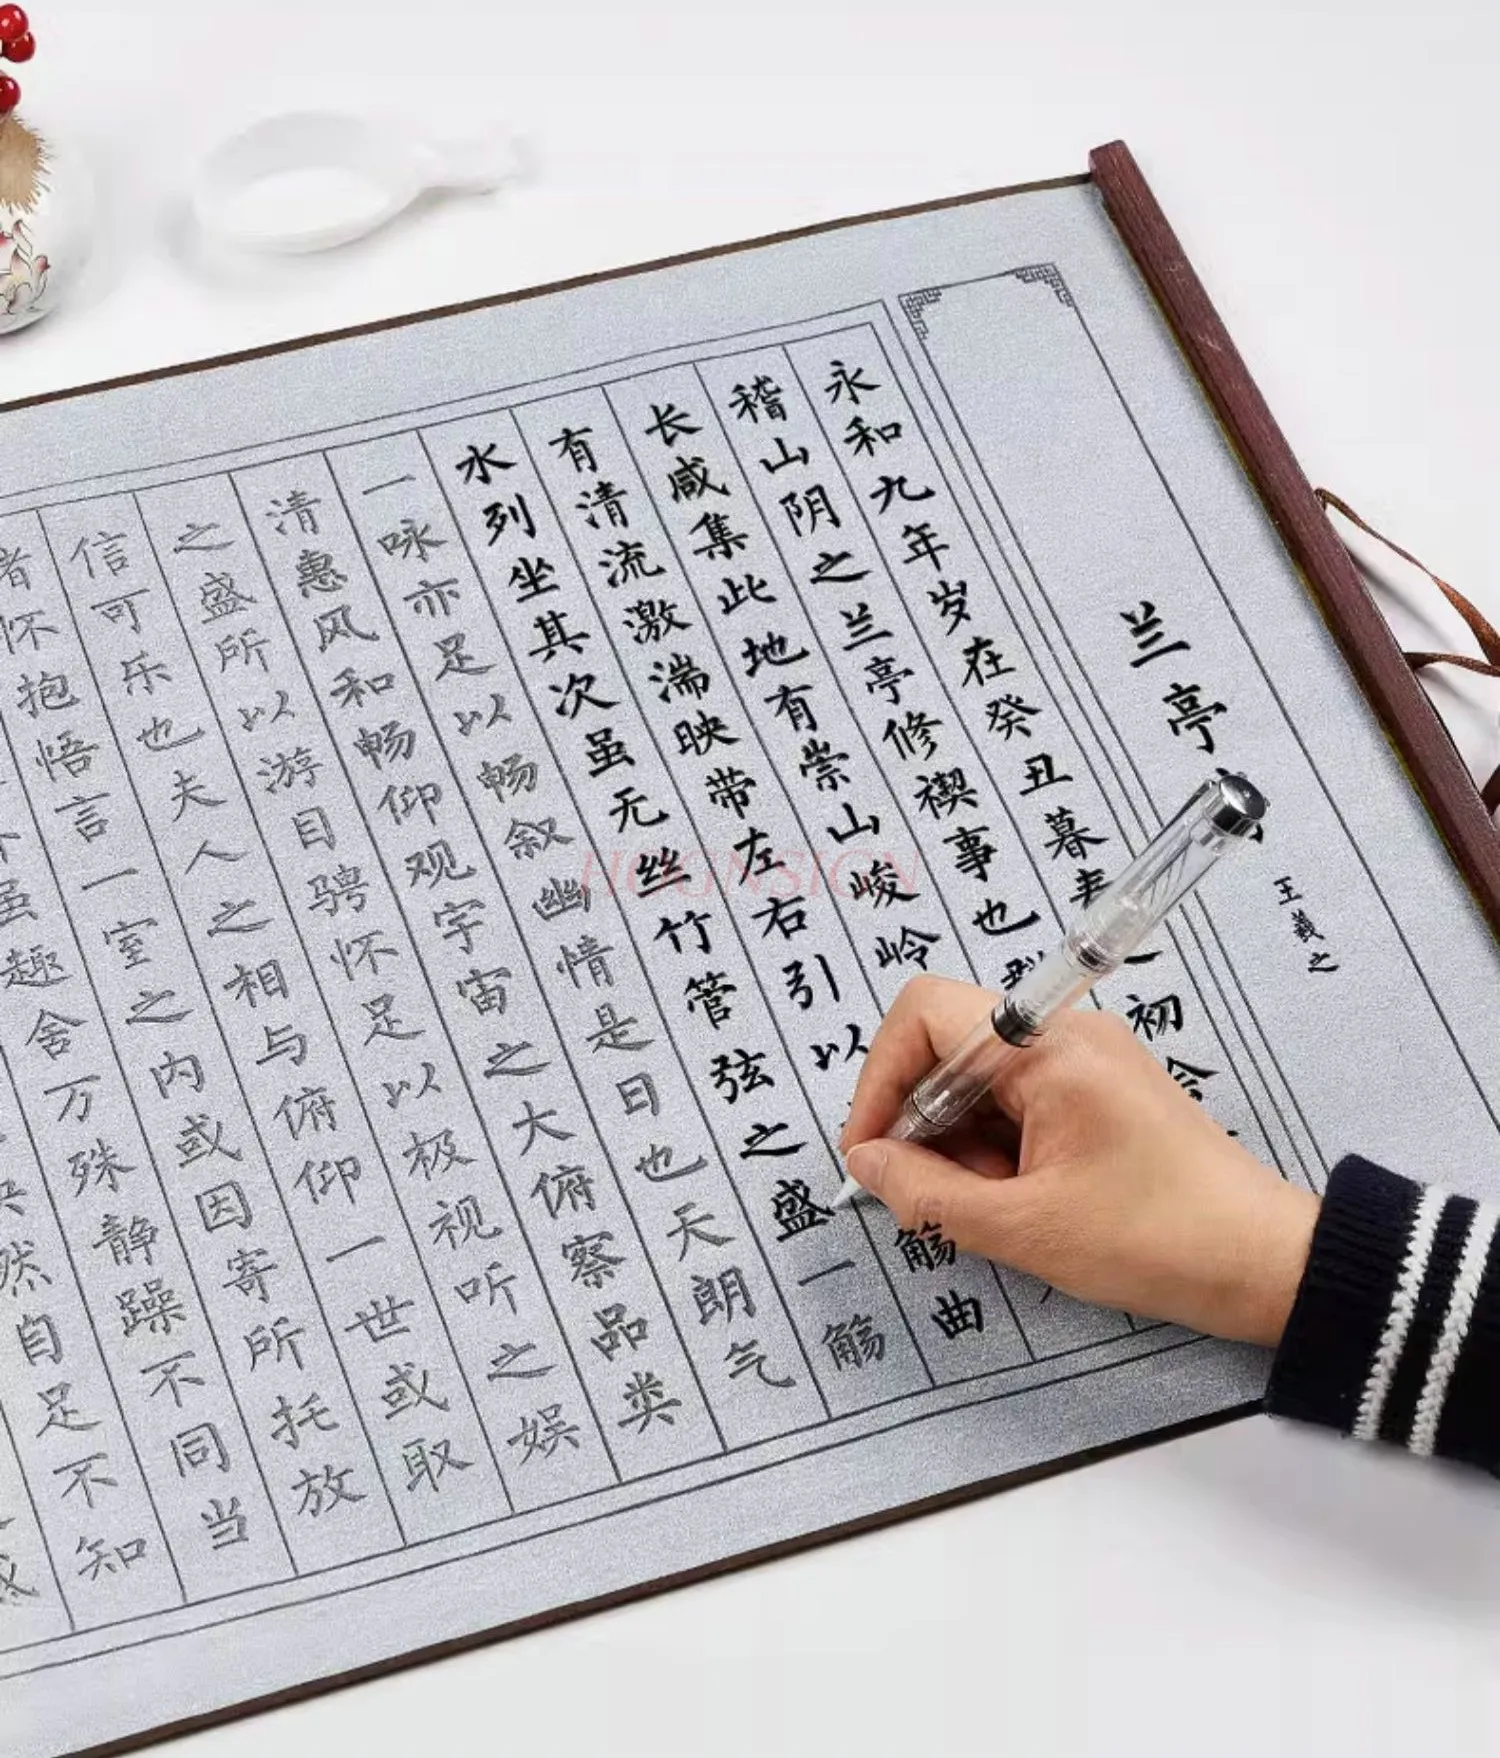 兰亭
王羲之
永和九年岁在癸丑暮春初会
稽山阴之兰亭修禊事也群
长咸集此地有崇山峻岭
有清流激湍映带左右引以觞曲
水列坐其次虽无丝竹管弦之盛一觞
一咏亦足以畅叙幽情是日也天朗气
清惠风和畅仰观宇宙之大俯察品类
之盛所以游目骋怀足以极视听之娱
信可乐也夫人之相与俯仰一世或取
怀抱悟言一室之内或因寄所托放
虽趣舍万殊静躁不同当
然自足不知
HOGNSIGN